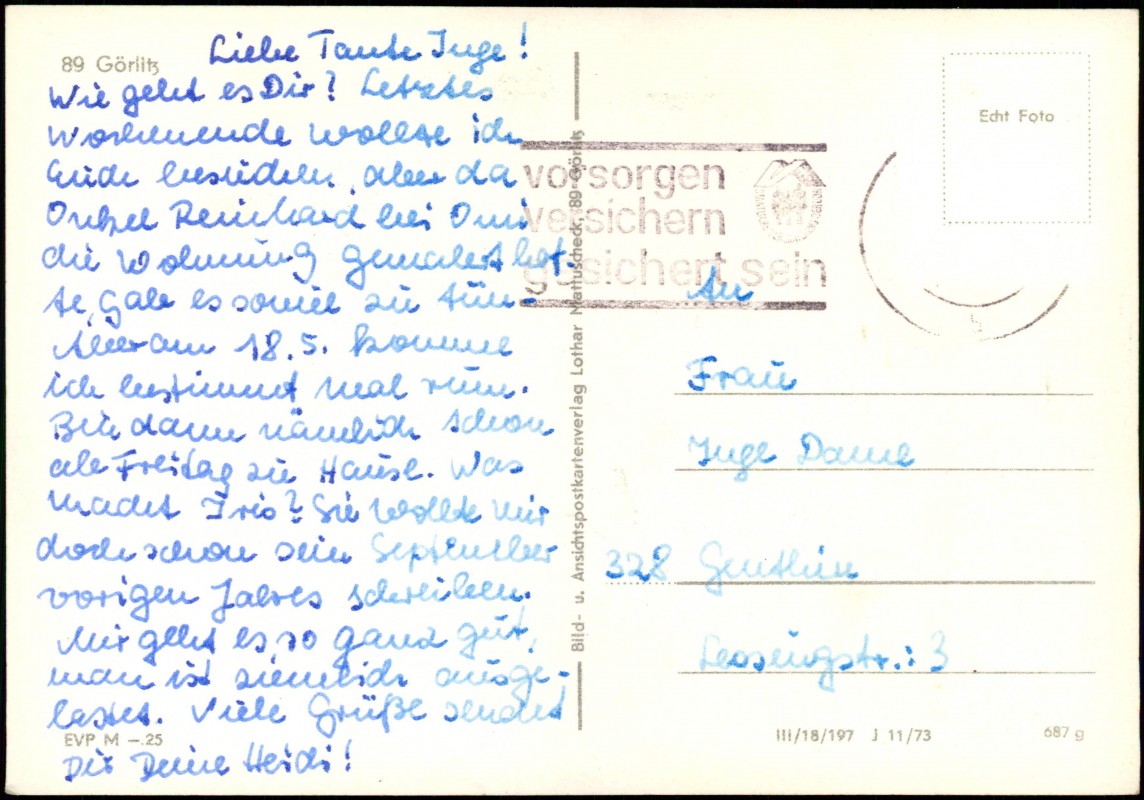 89 Görlitz
Liebe Tante Inge!
Wie geht es Dir? Letztes
Wochenende wollte ich
Euch besuchen, aber da
Onkel Reinhard bei Omi
die Wohnung gemalert hat-
te, gab es soviel zu tun.
Aber am 18.5. komme
ich bestimmt mal rum.
Bin dann nämlich schon
ab Freitag zu Hause. Was
macht Iris? Sie wollte mir
doch schon seit September
vorigen Jahres schreiben.
Mir geht es so ganz gut,
man ist ziemlich ausge-
lastet. Viele Grüße sendet
Dir Deine Heidi!
EVP M –.25
Bild- u. Ansichtspostkartenverlag Lothar Mattuscheck, 89 Görlitz
vorsorgen
versichern
gesichert sein
Echt Foto
An
Frau
Inge Dame
328 Genthin
Lessingstr.: 3
III/18/197 J 11/73
687 g